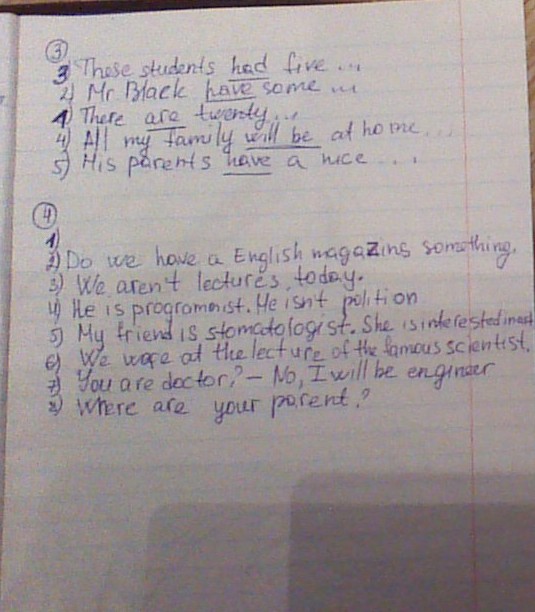 ③
3) These students had five ...
2) Mr Black have some ...
1) There are twenty...
4) All my family will be at home...
5) His parents have a nice ...
④
1)
2) Do we have a English magazins something.
3) We aren't lectures today.
4) He is programmist. He isn't polition
5) My friend is stomatologist. She is interested in
6) We wore at the lecture of the famous scientist.
7) You are doctor? – No, I will be engineer
8) Where are your parent?